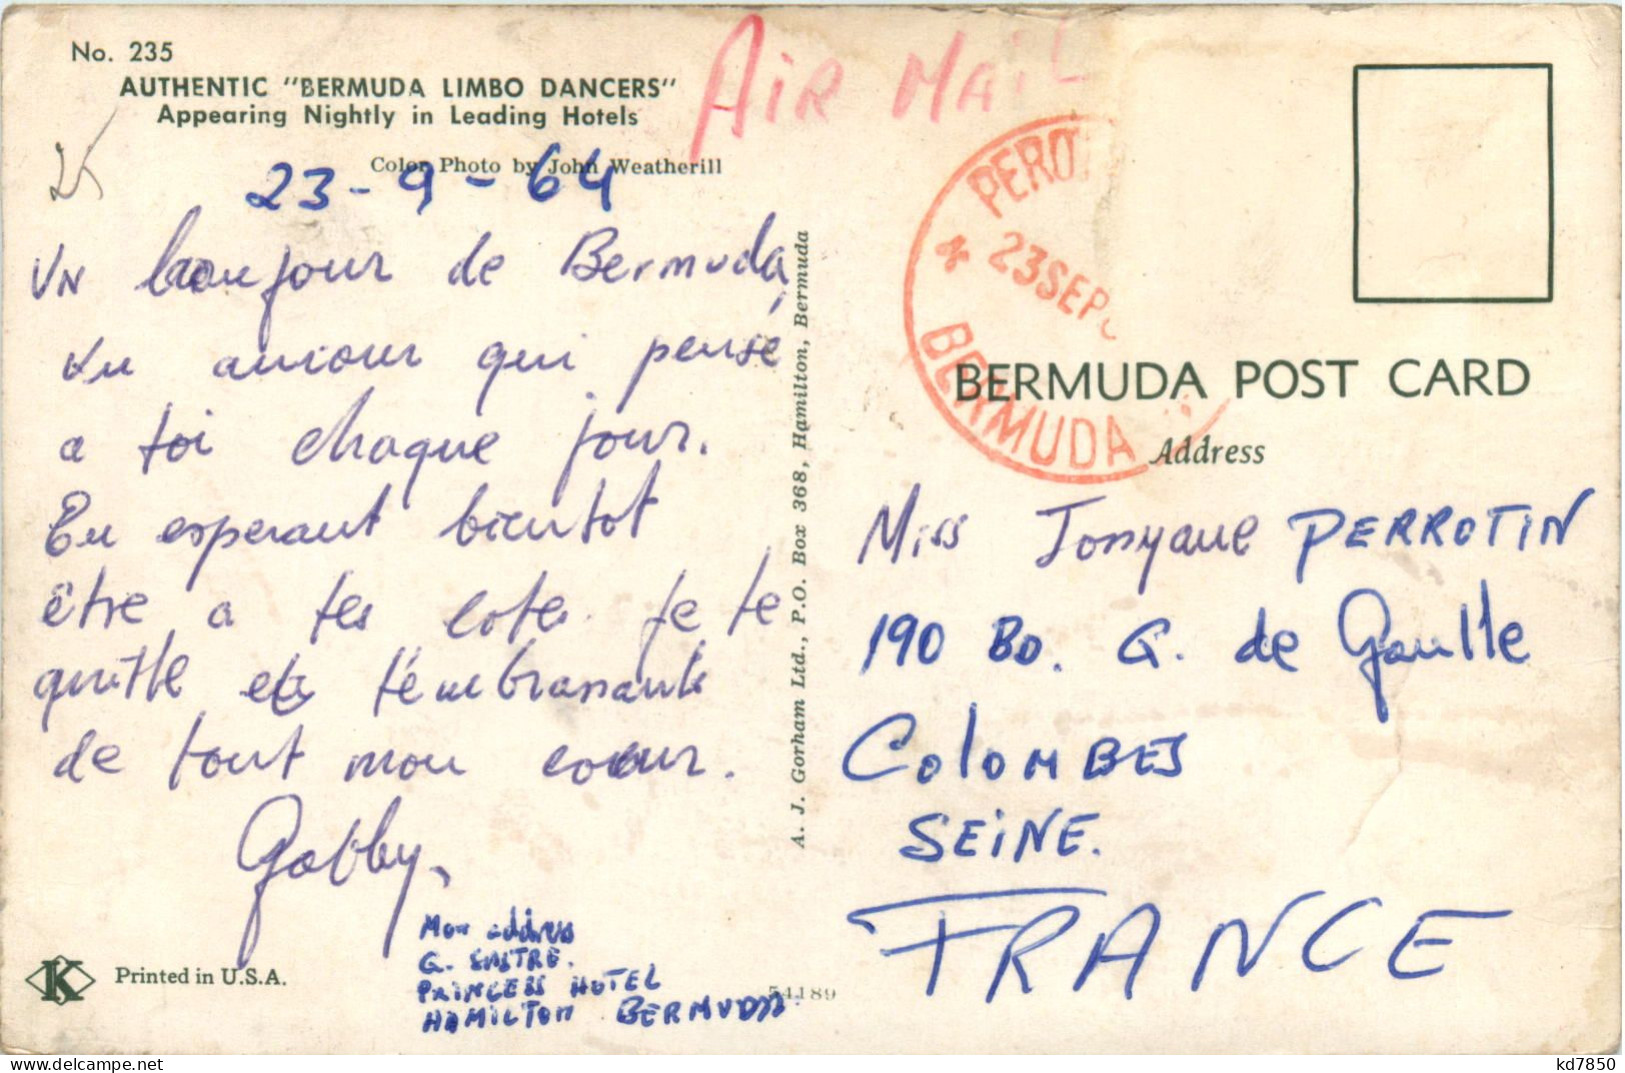 No. 235
AUTHENTIC "BERMUDA LIMBO DANCERS"
Appearing Nightly in Leading Hotels
Color Photo by John Weatherill
AiR MAiL
25
23-9-64
Un bonjour de Bermuda,
du amour qui pensé
a toi chaque jour.
En esperant bientot
être a tes cotes. Je te
quitte en t'embrassant
de tout mon coeur.
Gabby.
Mon address
G.
PRINCESS HOTEL
HAMILTON BERMUDA
Printed in U.S.A.
K
54189
A. J. Gorham Ltd., P.O. Box 368, Hamilton, Bermuda
PERO
* 23SEP
BERMUDA
BERMUDA POST CARD
Address
Miss Josyane PERROTIN
190 BD. G. de Gaulle
COLOMBES
SEiNE.
FRANCE
kd7850